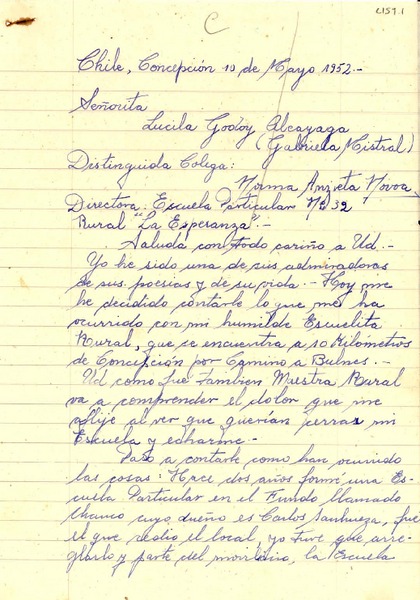 C
2157.1
Chile, Concepción 10 de Mayo 1952.-
Señorita
Lucila Godoy Alcayaga
(Gabriela Mistral)
Distinguida Colega:
Norma Anzieta Novoa,
Directora. Escuela Particular Nº 32
Rural "La Esperanza".-
Saluda con todo cariño a Ud.-
Yo he sido una de sus admiradoras
de sus poesías y de su vida.- Hoy me
he decidido contarle lo que me ha
ocurrido con mi humilde Escuelita
Rural, que se encuentra a 10 Kilometros
de Concepción por Camino a Bulnes.-
Ud como fue tambien Maestra Rural
va a comprender el dolor que me
aflije al ver que querían cerrar mi
Escuela y echarme.-
Paso a contarle como han ocurrido
las cosas: Hace dos años formé una Es-
cuela Particular en el Fundo llamado
cuyo dueño es Carlos Sanhueza, fué
el que cedio el local, yo tuve que arre-
glarlo y parte del moviliario, la Escuela